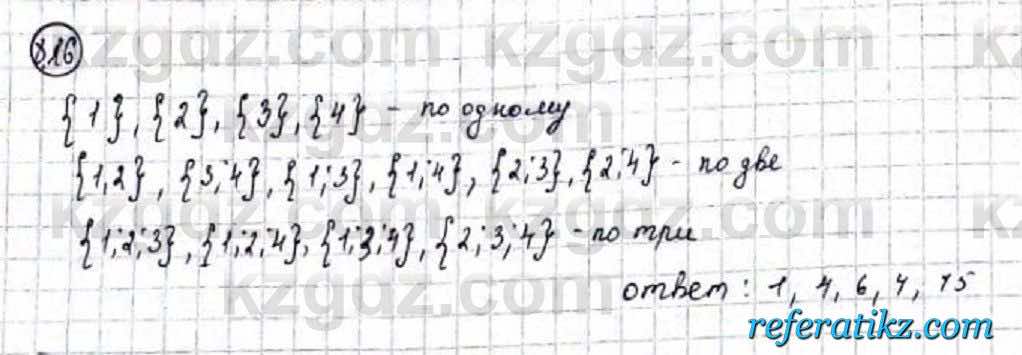 8.16
{1}, {2}, {3}, {4} - по одному
{1,2}, {3;4}, {1;3}, {1;4}, {2;3}, {2;4} - по две
{1;2;3}, {1;2;4}, {1;3;4}, {2;3;4} - по три
ответ: 1, 4, 6, 4, 15
referatikz.com
kzgdz.com kzgdz.com
kzgdz.com
kzgdz.com kzgdz.com
kzgdz.com